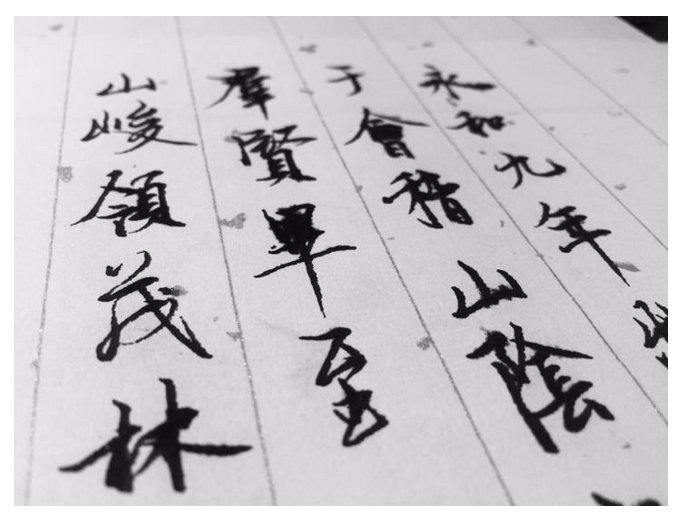 永和九年
于會稽山陰
羣賢畢至
山峻領茂林